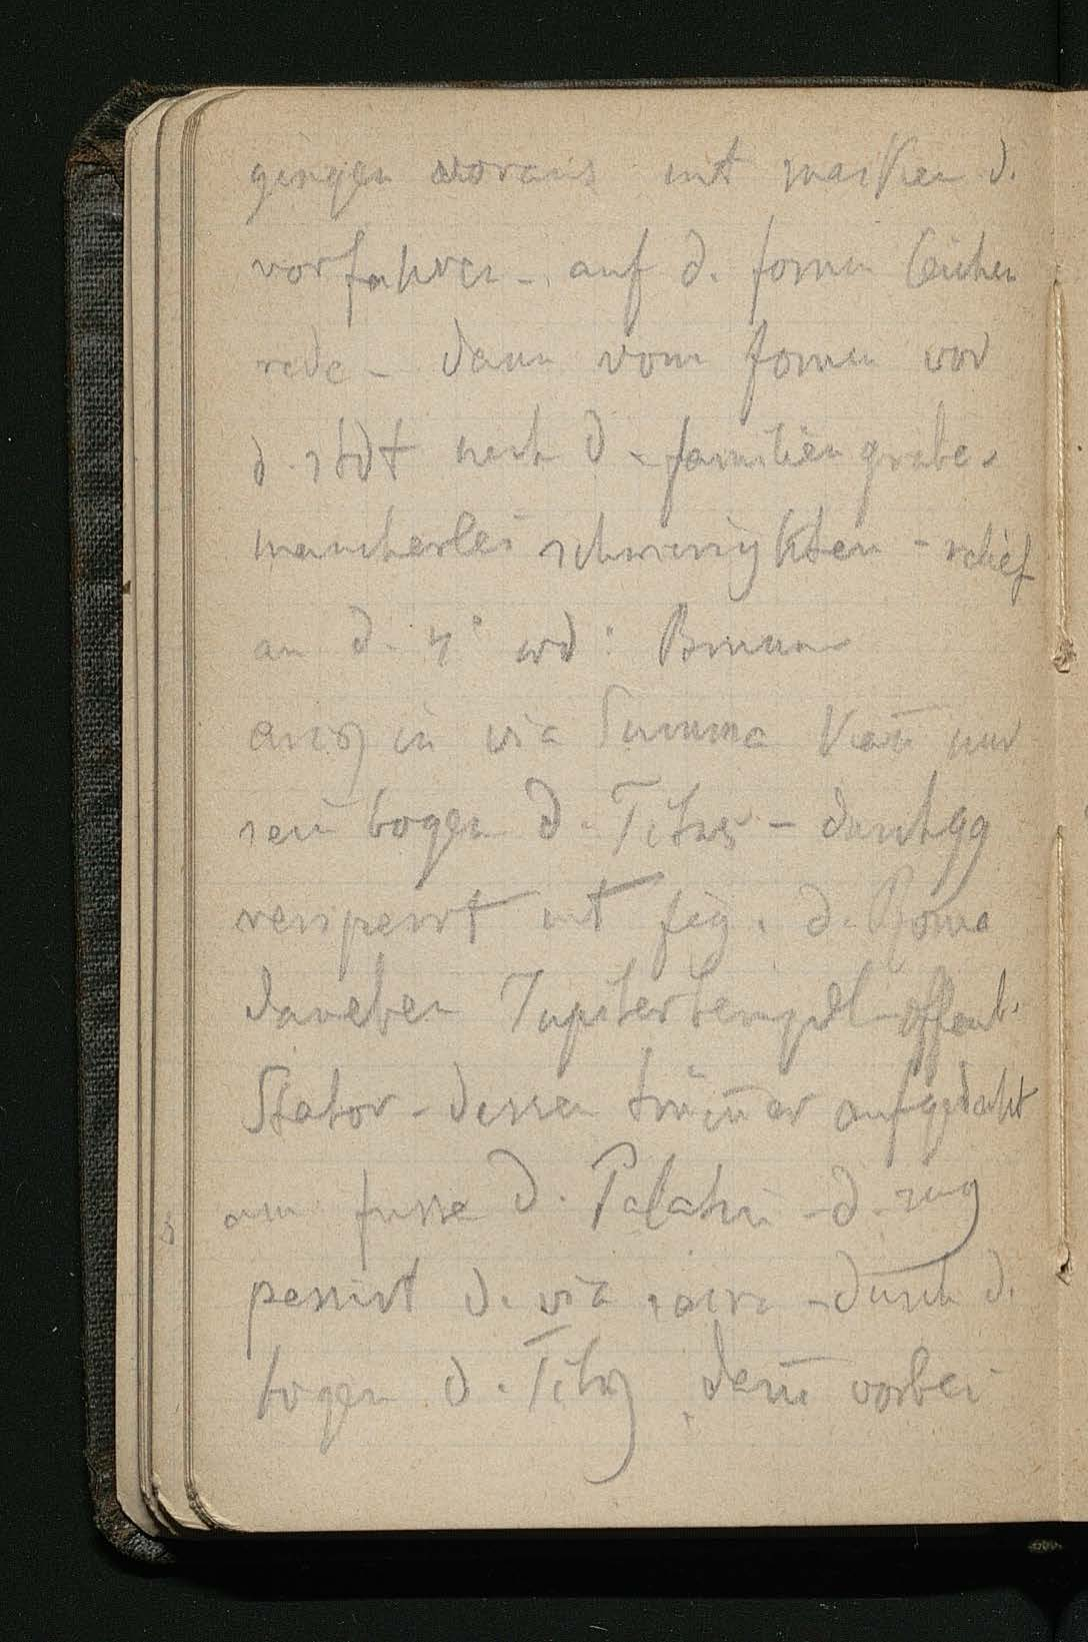 gingen voraus mit masken d.
vorfahren - auf d. forum leichen
rede - dann vom forum vor
d. stdt nach d. familiengrabe -
mancherlei schwierigkten - relief
an d. 4°
arcus in via Summa kañ nur
sein bogen d. Titus - durchgg
versperrt mit fig. d. Roma
daneben Jupitertempel offenb.
Stator - dessen trüm̄er aufgedekt
am fusse d. Palatin - d. zug
passirt d. via sacra - durch d.
bogen d. Titus dañ vorbei